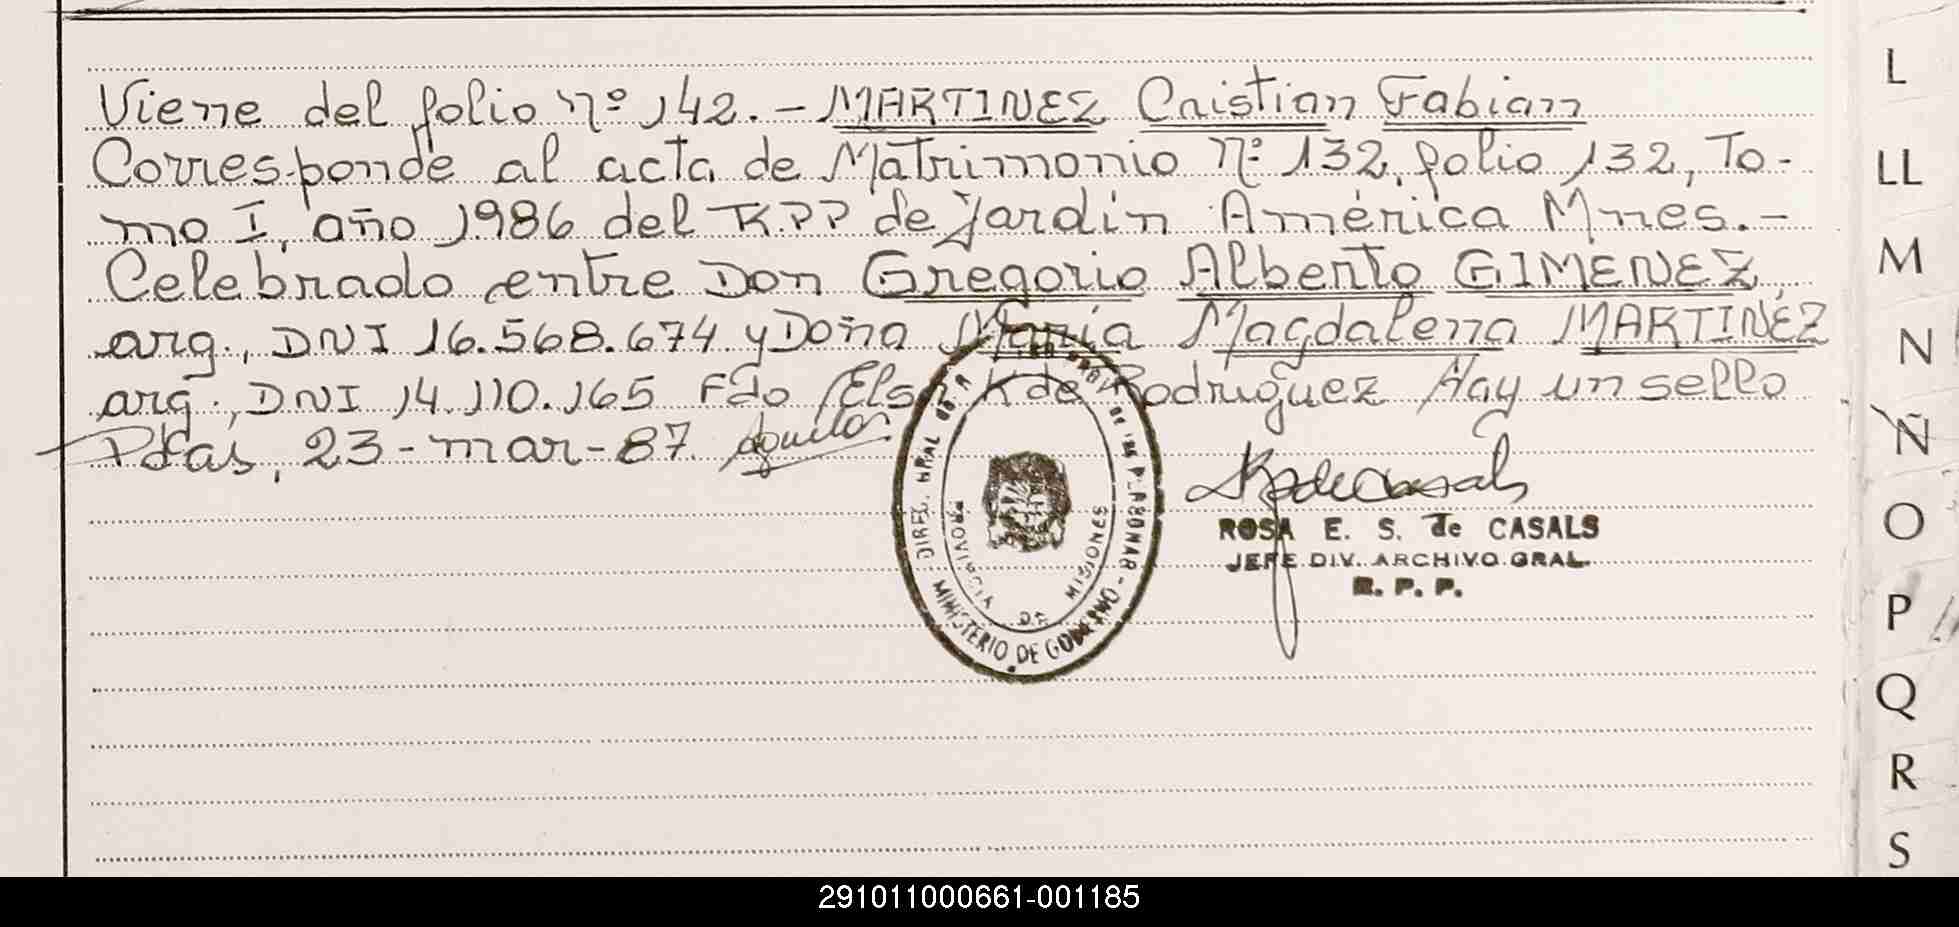 Viene del folio nº 142. - MARTINEZ Cristian Fabian
Corresponde al acta de Matrimonio nº 132, folio 132, To-
mo I, año 1986 del R.P.P de Jardín América Mnes. -
Celebrado entre Don Gregorio Alberto GIMENEZ,
arg., DNI 16.568.674 y Doña María Magdalena MARTINEZ
arg., DNI 14.110.165 Fdo Elsa K de Rodriguez Hay un sello
Pdas, 23-mar-87.
MINISTERIO DE GOBIERNO
PROVINCIA DE MISIONES
ROSA E. S. de CASALS
JEFE DIV. ARCHIVO GRAL.
R. P. P.
L
LL
M
N
Ñ
O
P
Q
R
S
291011000661-001185